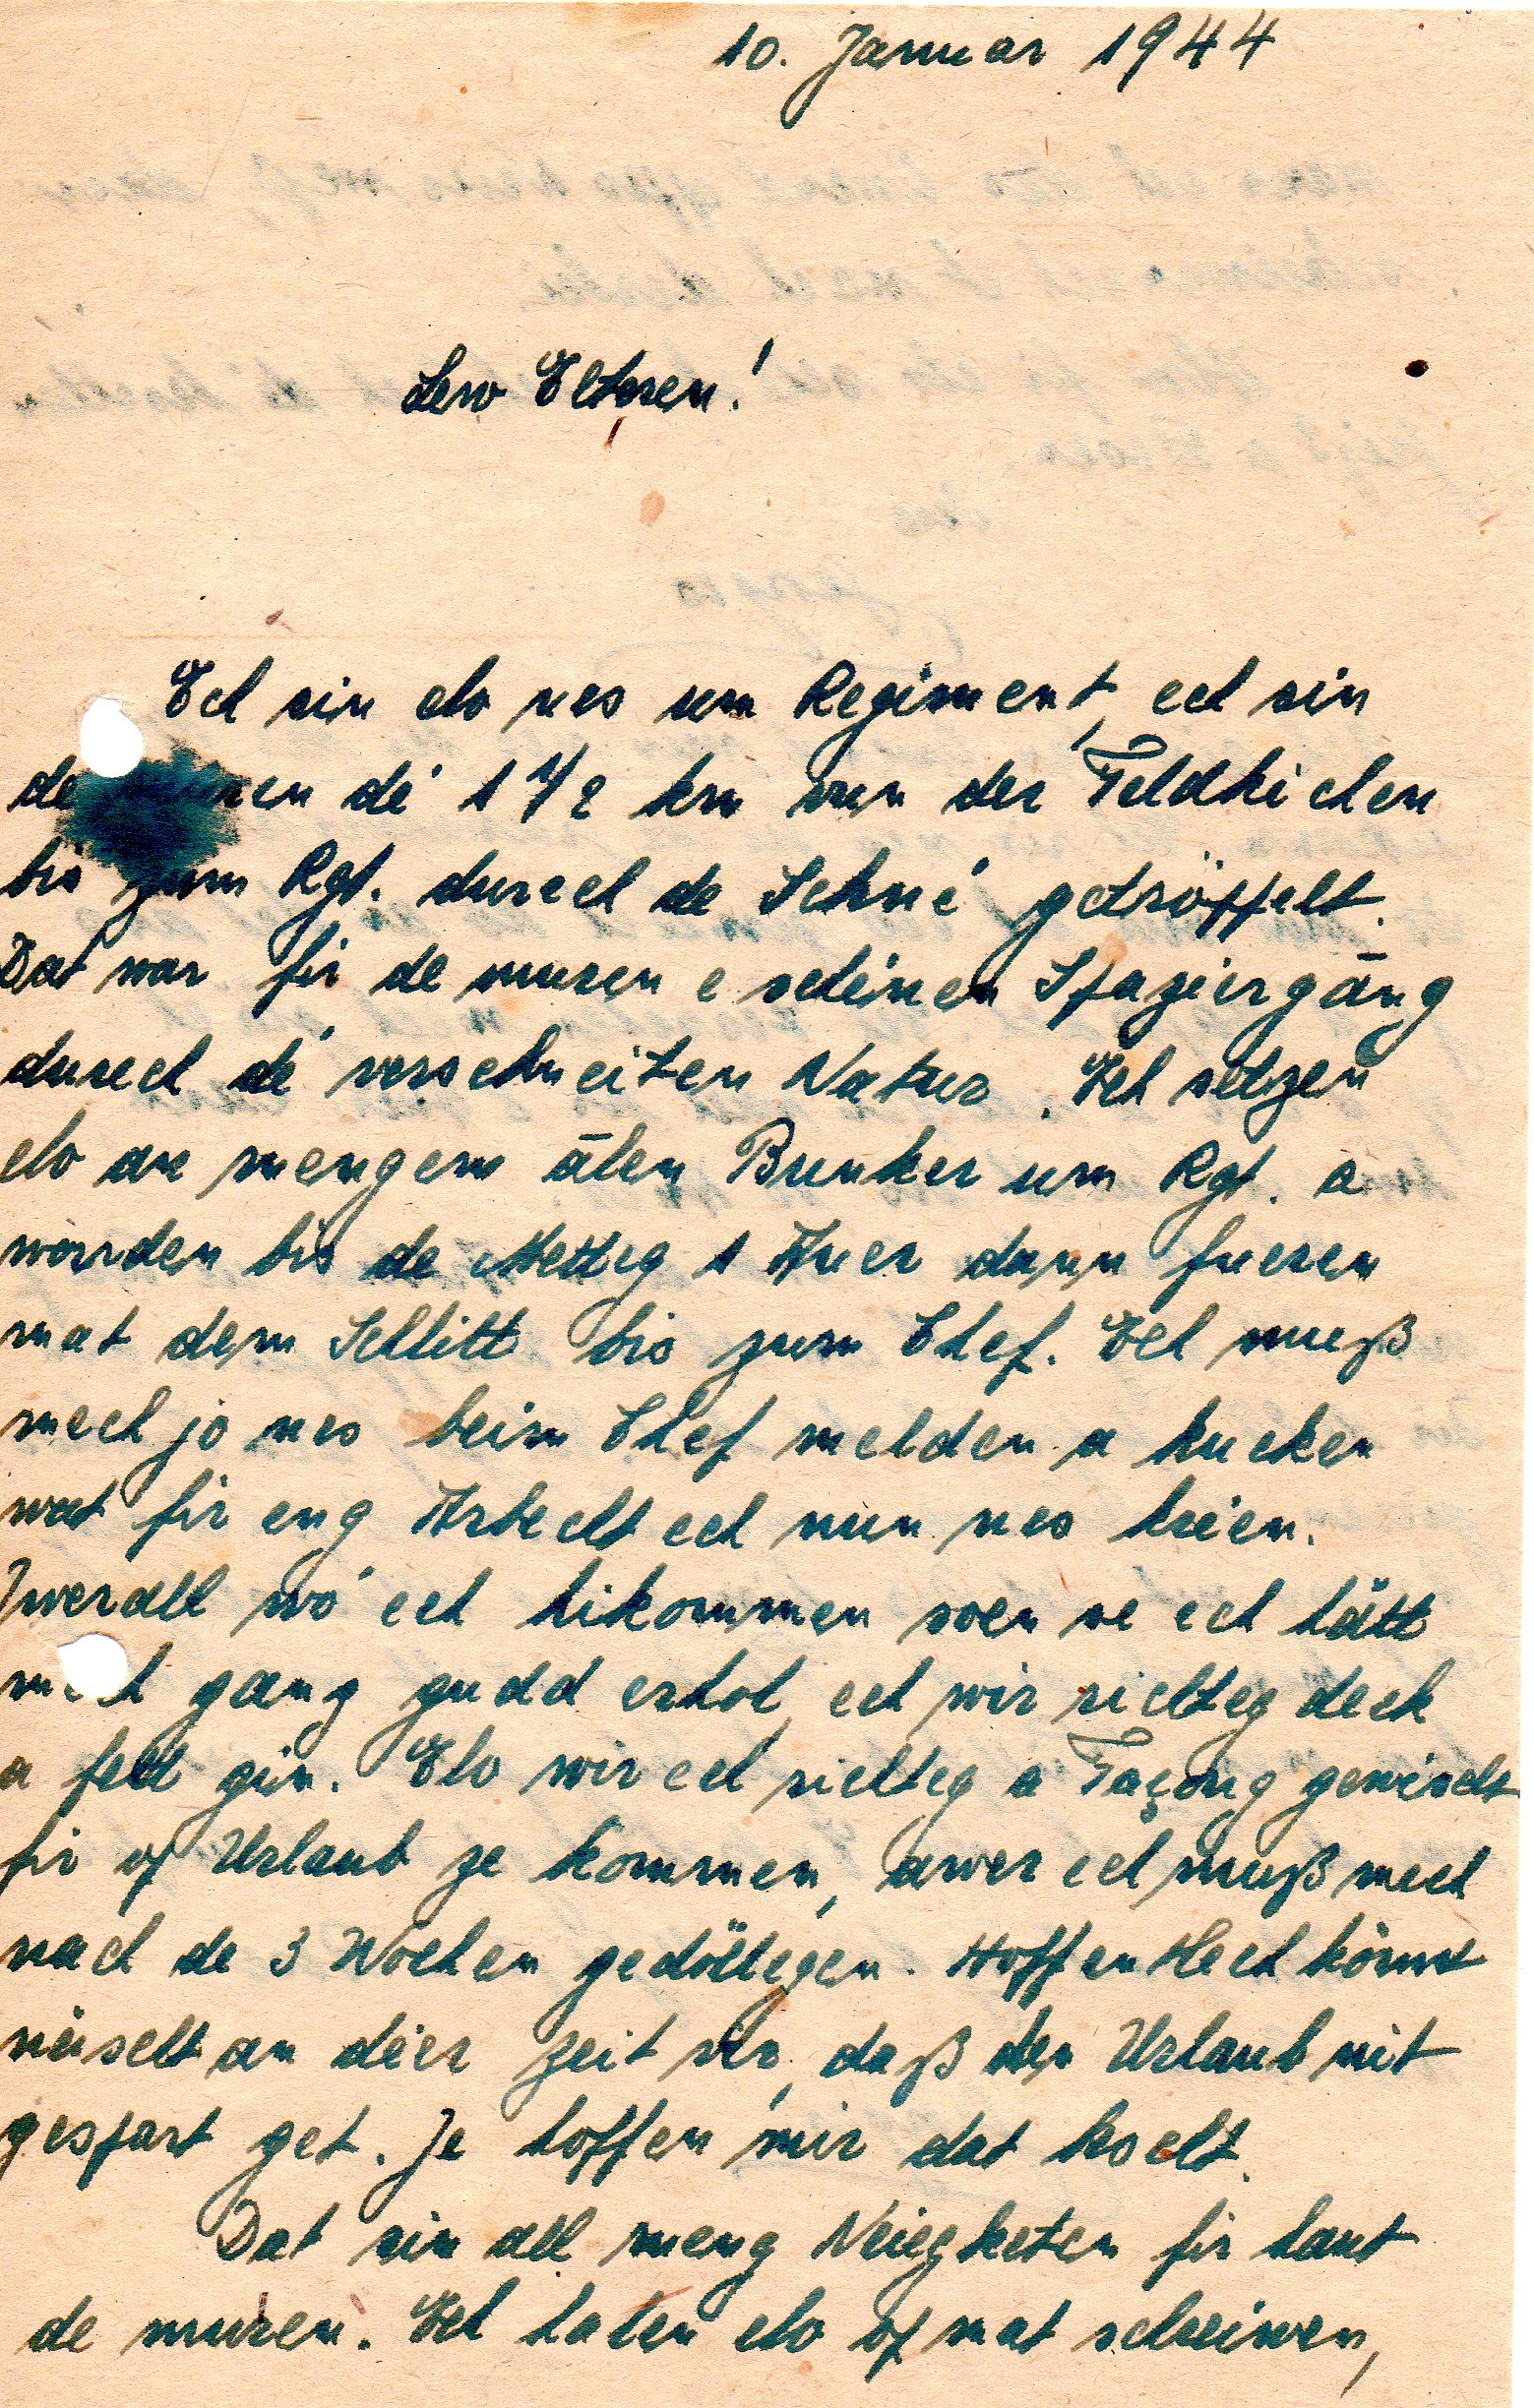 10. Januar 1944
Lew Elteren!
Ech sin elo nes um Regiment, ech sin
de muren dé 1 1/2 km vun der Feldkichen
bis zum Rgt. durech de Schné getröffelt.
Dat war fir de muren e schéinen Spaziergāng
durech dé verschneiten Natur. Ech setzen
elo an mengem ālen Bunker um Rgt. a
warden bis de Metteg 1 Auer dann fueren
mat dem Schlitt bis zum Chef. Ech muß
mech jo nes beim Chef melden a kucken
wat fir eng Arbecht ech nun nes kréien.
Iwerall wó ech hikommen soen se ech hätt
mech gang gudd erholt, ech wir richteg deck
a fett gin. Elo wir ech richteg a Façong gewiecht
fir of Urlaub ze kommen, awer ech muß mech
nach de 3 Wochen gedölegen. Hoffentlech könnt
näischt an déier zeit vir, daß den Urlaub nit
gespart get. Je hoffen mir dat bescht.
Dat sin all meng Neiegketen fir haut
de muren. Ech halen elo of mat schreiwen,